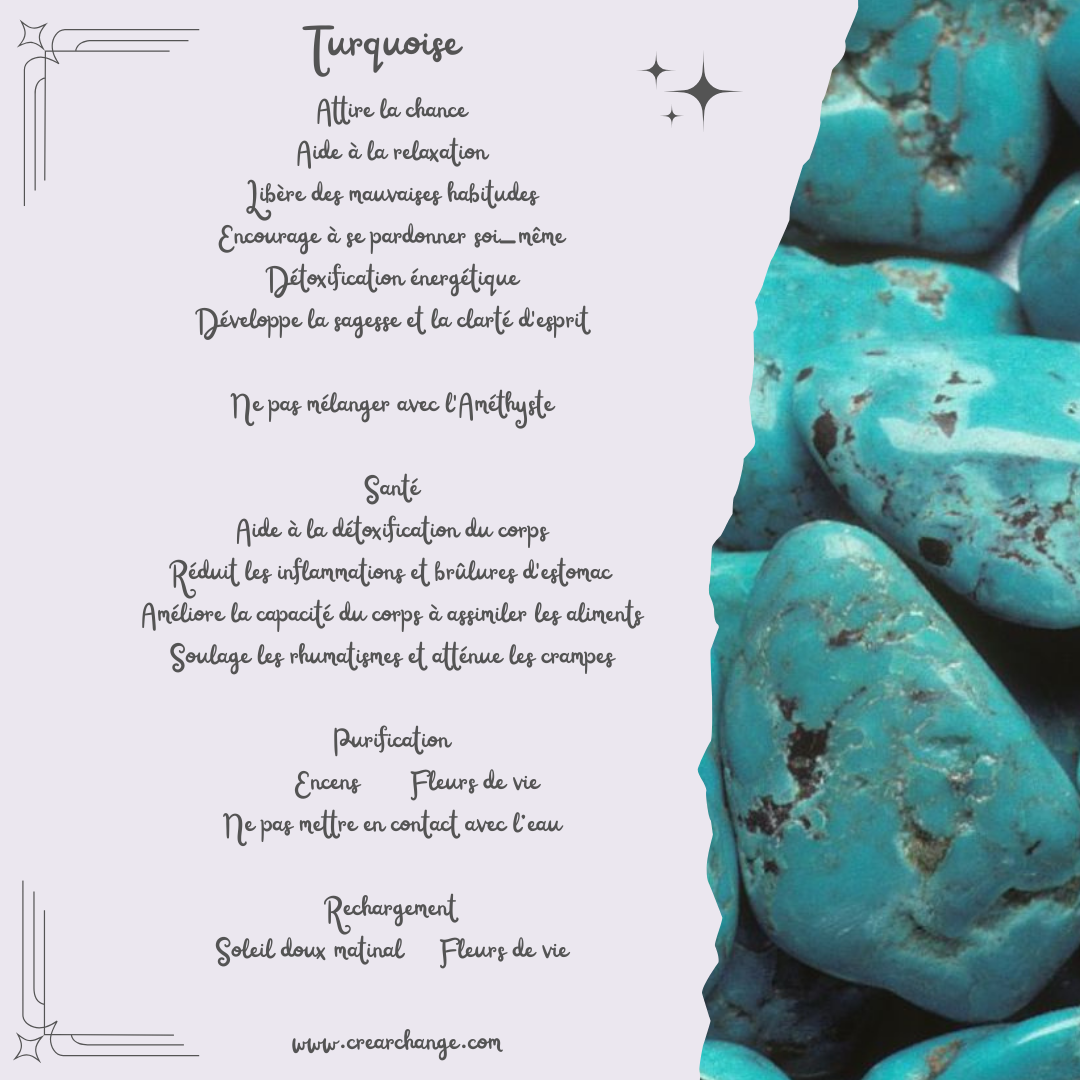 Turquoise
Attire la chance
Aide à la relaxation
Libère des mauvaises habitudes
Encourage à se pardonner soi-même
Détoxification énergétique
Développe la sagesse et la clarté d'esprit
Ne pas mélanger avec l'Améthyste
Santé
Aide à la détoxification du corps
Réduit les inflammations et brûlures d'estomac
Améliore la capacité du corps à assimiler les aliments
Soulage les rhumatismes et atténue les crampes
Purification
Encens Fleurs de vie
Ne pas mettre en contact avec l'eau
Rechargement
Soleil doux matinal Fleurs de vie
www.crearchange.com